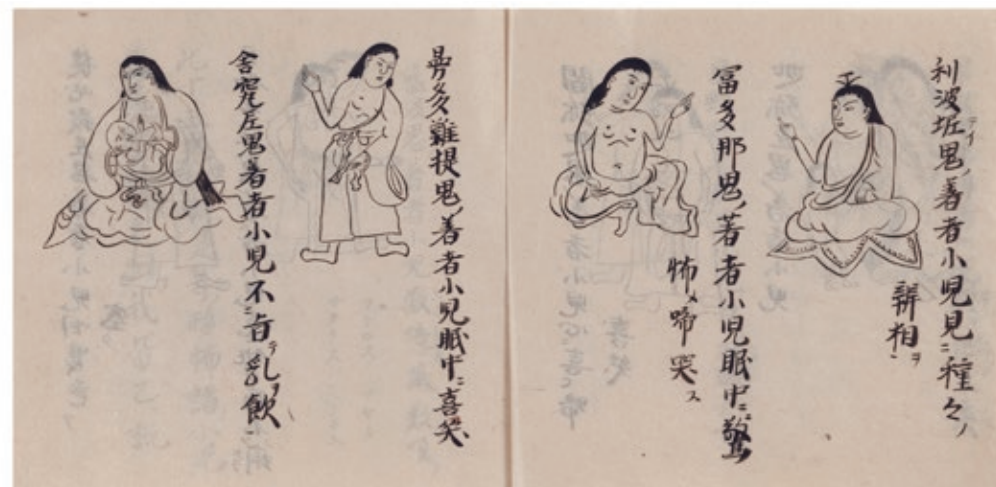 利波坻鬼ノ着者小児見ニ種々ノ
辬相ヲ
富多那鬼ノ著者小児眠中ニ驚
怖メ啼哭ス
曼多難提鬼ノ着者小児眠中ニ喜笑
舎究尼鬼着者小児不ニ肯テ乳ヲ飲